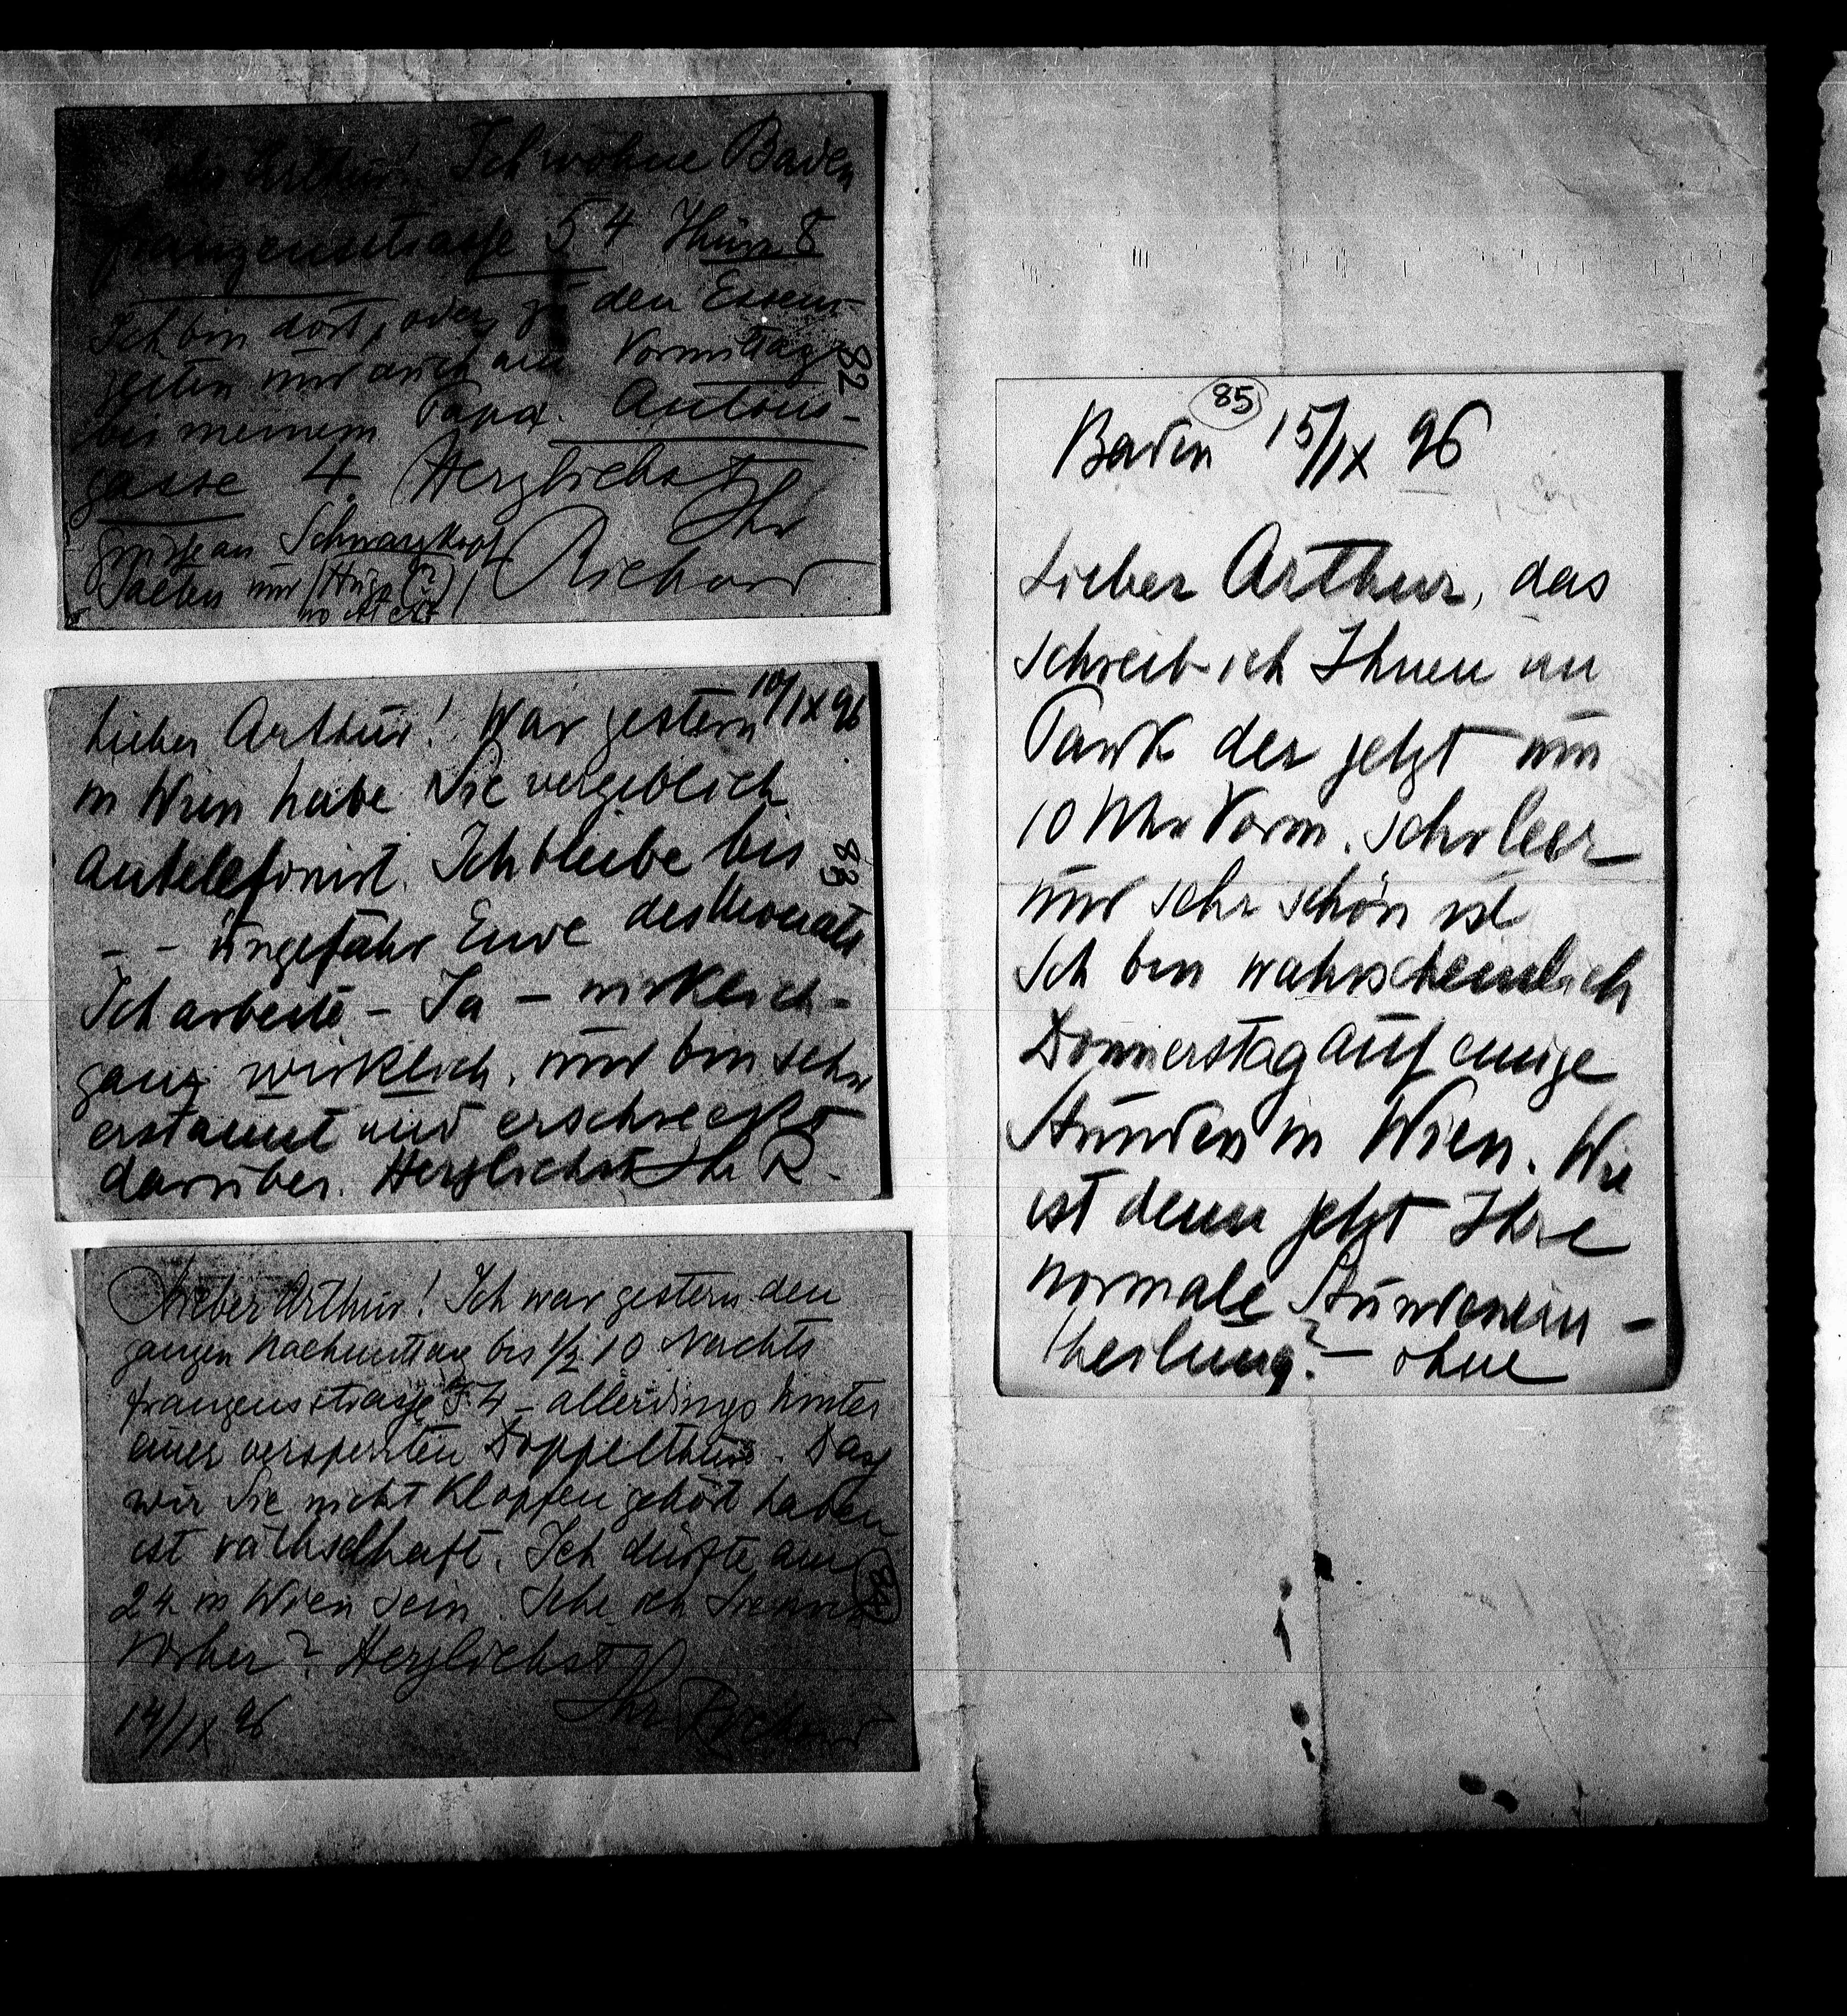 Lieber Arthur! Ich wohne Baden
Franzensstrasse 54 Thür 8
Ich bin dort, oder zu den Essens-
zeiten und auch am Vormittag
bei meinem Papa. Antons-
gasse 4. Herzlichst
Ihr
Richard
Grüsse an Schwarzkopf
Salten und (Hugo (?)
wo ist er?)
82
Lieber Arthur! War gestern 10/IX 96
in Wien habe Sie vergeblich
antelefonirt. Ich bleibe bis
– – ungefähr Ende des Monats.
Ich arbeite – Ja – wirklich –
ganz wirklich, und bin sehr
erstaunt und erschreckt
darüber. Herzlichst Ihr R.
83
Lieber Arthur! Ich war gestern den
ganzen Nachmittag bis 1/2 10 Nachts
Franzensstrasse 54 – allerdings hinter
einer versperrten Doppelthür. Dass
wir Sie nicht klopfen gehört haben
ist räthselhaft. Ich dürfte am
24 in Wien sein. Sehe ich Sie
vorher? Herzlichst
14/IX 96 Ihr Richard
85
Baden 15/IX 96
Lieber Arthur, das
schreib ich Ihnen im
Park der jetzt um
10 Uhr Vorm. sehr leer
und sehr schön ist
Ich bin wahrscheinlich
Donnerstag auf einige
Stunden in Wien. Wie
ist denn jetzt Ihre
normale Stundenein-
theilung? – ohne